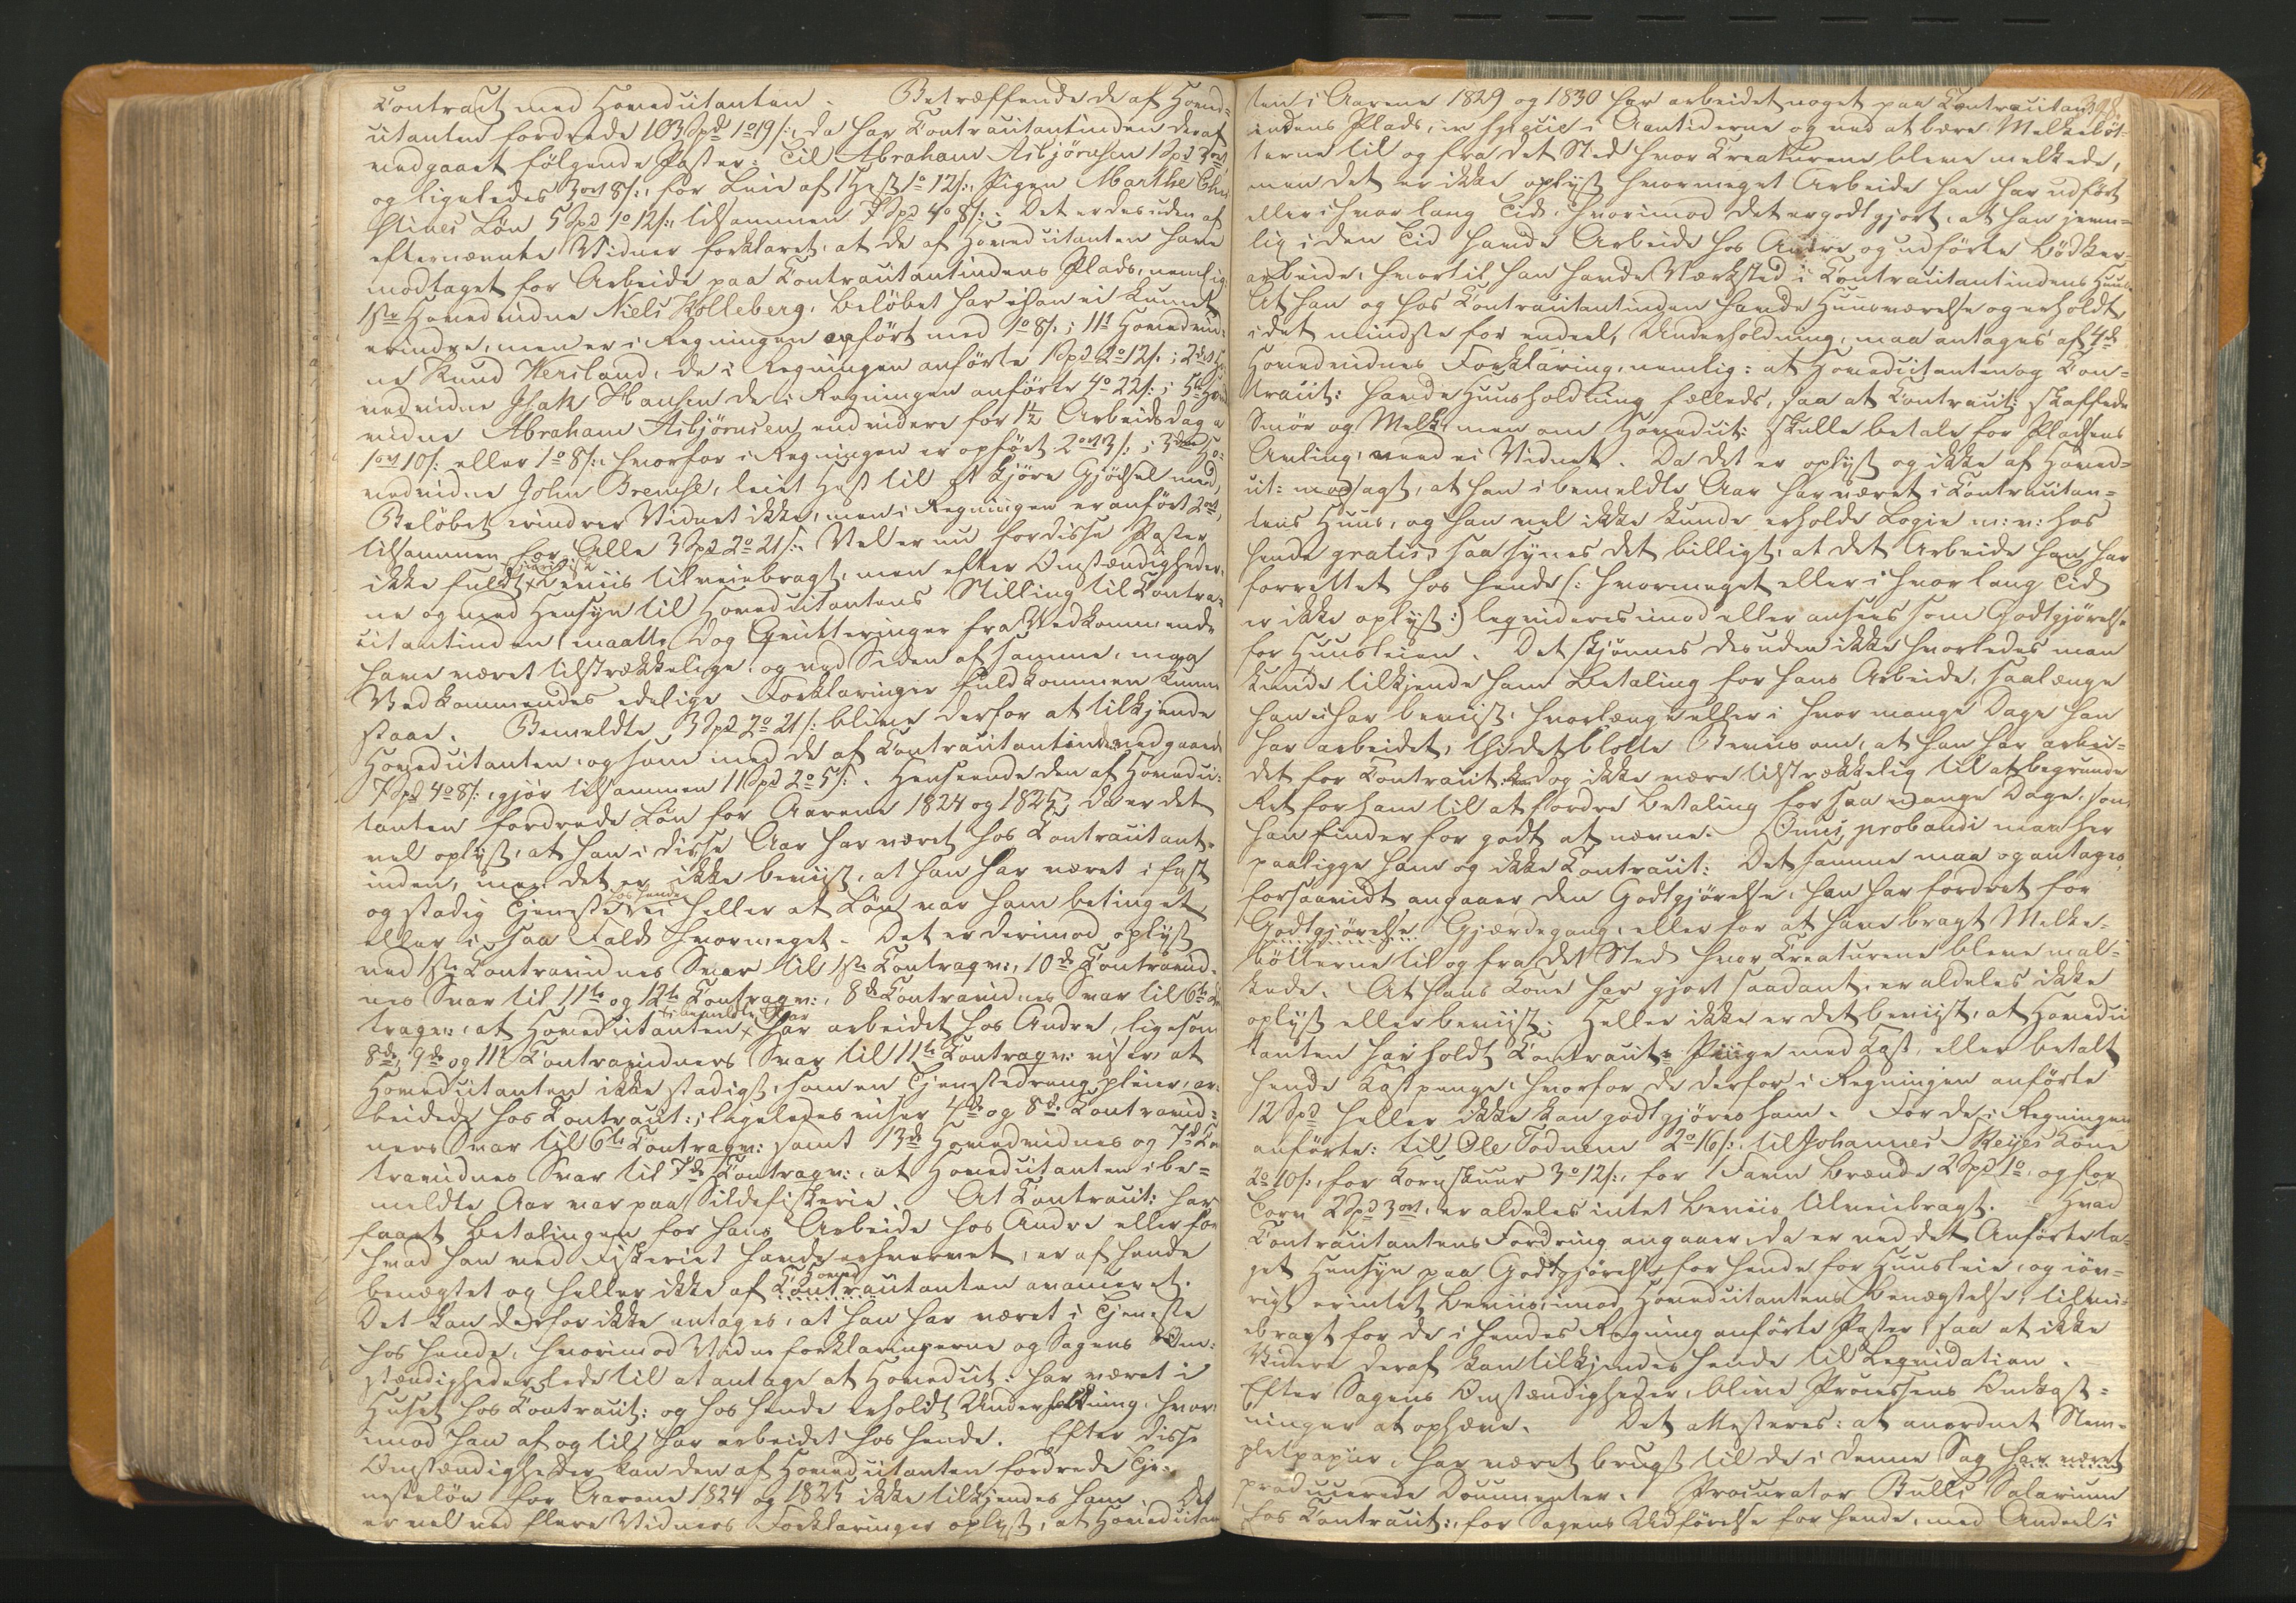 Contract med Hovedcitanten. Betræffende de af Hoved-
citanten fordrede 103 Spd 1o 19 s:, da har Contracitantinden deraf
vedgaaet følgende Poster: Til Abraham Asbjørnsen 1 Spd 3ort
og ligeledes 3ort 8 s:, for Leie af 1 Hest 1o 12 s:, Pigen Marthe
Stines Løn 5 Spd 1o 12 s:, tilsammen 7 Spd 4o 8 s:. Det er desuden af
efternævnte Vidner forklaret, at de af Hovedcitanten have
modtaget for Arbeide paa Contracitantindens Plads, nemlig:
1ste Hovedvidne Niels Kolleberg, Beløbet har han ei kunnet
erindre, men er i Regningen opført med 1o 8 s:; 11te Hovedvid-
ne Knud Wersland, de i Regningen anførte 1 Spd 2o 12 s:; 2det Ho-
vedvidne Isak Hansen de i Regningen anførte 4o 22 s:; 5te Hoved
vidne Abraham Asbjørnsen endvidere for 1½ Arbeidsdag a
1ort 10 s: eller 1o 8 s:, hvorfor i Regningen er opført 2ort 3 s:; 3die Ho-
vedvidne John Brenche, leiet Hest til at kjøre Gjødsel med,
Beløbet erindrer Vidnet ikke, men i Regningen er anført 2ort,
tilsammen for Alle 3 Spd 2o 21 s:. Vel er nu for disse Poster
ikke fuldt juridisk Beviis tilveiebragt, men efter Omstændigheder-
ne og med Hensyn til Hovedcitantens Stilling til Contra-
citantinden, maatte dog Qvitteringer fra Vedkommende
have været tilstrækkelige, og ved Siden af samme, maa
Vedkommendes edelige Forklaringer fuldkommen kunne
staae. Bemeldte 3 Spd 2o 21 s: blive derfor at tilkjende
Hovedcitanten, og som med de af Contracitantinden vedgaaede
7 Spd 4o 8 s:, gjør tilsammen 11 Spd 2o 5 s:. Henseende den af Hovedci-
tanten fordrede Løn for Aarene 1824 og 1825, da er det
vel oplyst, at han i disse Aar har været hos Contracitant-
inden, men det er ikke beviist, at han har været i fast
og stadig Tjeneste hos hende, ei heller at Løn var ham betinget
eller i saa Fald hvormeget. Det er derimod oplyst
ved 1ste Contravidnes Svar til 1ste Contraqv:, 10de Contravid-
nes Svar til 11te og 12te Contraqv:, 8de Contravidnes Svar til 6te Con
traqv:, at Hovedcitanten i bemeldte Aar har arbeidet hos Andre, ligesom
8de, 9de og 11te Contravidners Svar til 11te Contraqv: viser, at
Hovedcitanten ikke stadigst, som en Tjenestedreng pleier, ar-
beidede hos Contracit:; ligeledes viser 4de og 8de Contravid-
ners Svar til 6te Contraqv: samt 13de Hovedvidnes og 7de Con
travidnes Svar til 7de Contraqv:, at Hovedcitanten i be-
meldte Aar var paa Sildefiskerie. At Contracit: har
faaet Betalingen for hans Arbeide hos Andre eller for
hvad han ved Fiskeriet havde erhvervet, er af hende
benægtet og heller ikke af Hoved Contracitanten avanceret.
Det kan derfor ikke antages, at han har været i Tjeneste
hos hende, hvorimod Vidneforklaringerne og Sagens Om-
stændigheder lede til at antage at Hovedcit: har været i
Huset hos Contracit: og hos hende erholdt Underholdning, hvor-
imod han af og til har arbeidet hos hende. Efter disse
Omstændigheder kan den af Hovedcitanten fordrede Tje-
nesteløn for Aarene 1824 og 1825 ikke tilkjendes ham. Det
er vel ved flere Vidners Forklaringer oplyst, at Hovedcitan
398.
ten i Aarene 1829 og 1830 har arbeidet noget paa Contracitant-
indens Plads, in specie i Aantiderne og ved at bære Melkebøt-
terne til og fra det Sted hvor Kreaturene bleve melkede,
men det er ikke oplyst hvormeget Arbeide han har udført
eller i hvor lang Tid, hvorimod det er godtgjort, at han jevn-
lig i den Tid havde Arbeide hos Andre og udførte Bødker-
arbeide, hvortil han havde Værksted i Contracitantindens Huus.
At han og hos Contracitantinden havde Huusværelse og erholdt,
i det mindste for endeel, Underholdning, maa antages af 4de
Hovedvidnes Forklaring, nemlig: at Hovedcitanten og Con-
tracit: havde Huusholdning fælleds, saa at Contracit: skaffede
Smør og Melk, men om Hovedcit: skulle betale for Pladsens
Avling, veed ei Vidnet. Da det er oplyst og ikke af Hoved-
cit: modsagt, at han i bemeldte Aar har været i Contracitan-
tens Huus, og han vel ikke kunde erholde Logie m: v: hos
hende gratis, saa synes det billigt, at det Arbeide han har
forrettet hos hende (: hvormeget eller i hvor lang Tid
er ikke oplyst :) leqvideres imod eller ansees som Godtgjørelse
for Huusleien. Det skjønnes desuden ikke hvorledes man
kunde tilkjende ham Betaling for hans Arbeide, saalænge
han ei har beviist, hvorlænge eller i hvor mange Dage han
har arbeidet, thi det blotte Beviis om, at han har arbei-
det for Contracit: kan dog ikke være tilstrækkelig til at begrunde
Ret for ham til at fordre Betaling for saa mange Dage, som
han finder for godt at nævne. Onus probandi maa her
paaligge ham og ikke Contracit: Det samme maa og antages,
forsaavidt angaaer den Godtgjørelse, han har fordret for
Godtgjørelse Gjærdegang, eller for at have bragt Melke-
bøtterne til og fra det Sted hvor Kreaturene bleve mel-
kede. At hans Kone har gjort saadant, er aldeles ikke
oplyst eller beviist. Heller ikke er det beviist, at Hovedci
tanten har holdt Contracit:s Piige med Kost eller betalt
hende Kostpenge, hvorfor de derfor i Regningen anførte
12 Spd heller ikke kan godtgjøres ham. For de i Regningen
anførte: til Ole Todnem 2o 16 s:, til Johannes Reyes Kone
2o 10 s:, for Kornskuur 3o 12 s:, for 1 Favn Brænde 2 Spd 1o, og for
Korn 2 Spd 3ort, er aldeles intet Beviis tilveiebragt. Hvad
Contracitantens Fordring angaaer, da er ved det Anførte ta-
get Hensyn paa Godtgjørelse for hende for Huusleie, og iøv-
rigt er intet Beviis, imod Hovedcitantens Benægtelse, tilvei-
ebragt for de i hendes Regning anførte Poster, saa at ikke
Videre deraf kan tilkjendes hende til Leqvidation.
Efter Sagens Omstændigheder, blive Processens Omkost-
ninger at ophæve. Det attesteres: at anordnet Stem-
pletpapiir, har været brugt til de i denne Sag har været
producerede Documenter. Procurator Bulls Salarium
hos Contracit:, for Sagens Udførelse for hende, med Andeel i